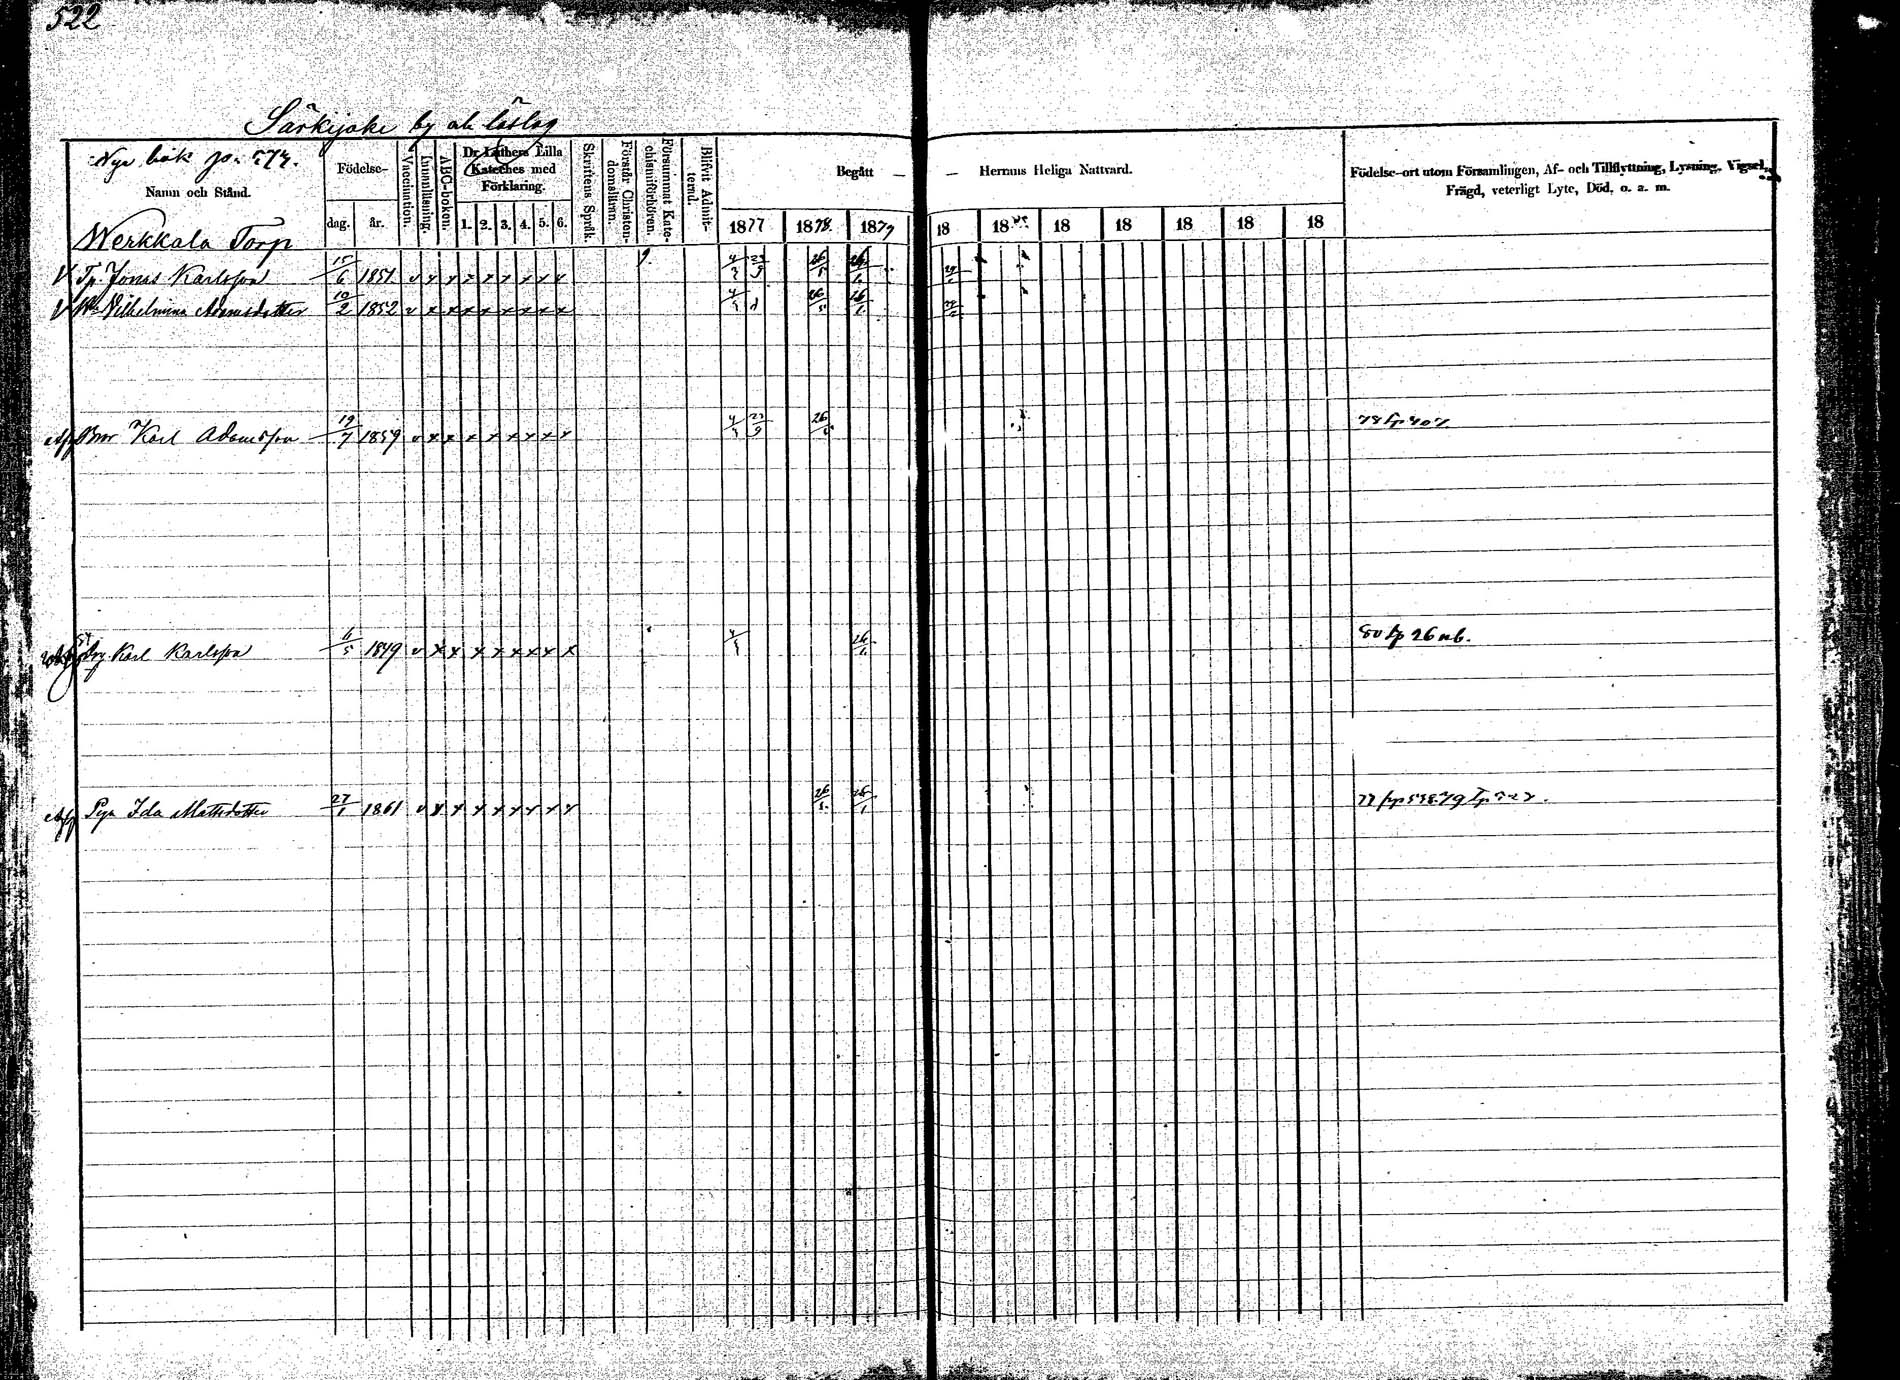 522
Särkijoki by och löslag
Nya bok p. 574.
Namn och Stånd.
Födelse-
dag. år.
Vaccination.
Innanläsning.
ABC-boken.
Dr Luthers Lilla
Kateches med
Förklaring.
1. 2. 3. 4. 5. 6.
Skriftens Språk.
Förstår Christen-
domsläran.
Försummat Kate-
chismiförhören.
Blifvit Admit-
terad.
Begått — — Herrans Heliga Nattvard.
1877 1878 1879 18 18 18 18 18 18 18
Födelse-ort utom Församlingen, Af- och Tillflyttning, Lysning, Vigsel,
Frägd, veterligt Lyte, Död, o. a. m.
Werkkala Torp
V Tp. Jonas Karlsson 15/6 1851 v x x x x x x x x 26/5
V Vilhelmina Adamsdotter 10/2 1852 v x x x x x x x x 26/5
Karl Adamsson 19/7 1859 v x x x x x x x x 26/5
Karl Karlsson 6/5 1849 v x x x x x x x x 26/1 80 fp 26 ub.
Pga Ida Mattsdotter 27/1 1861 v x x x x x x x x 26/5 26/1